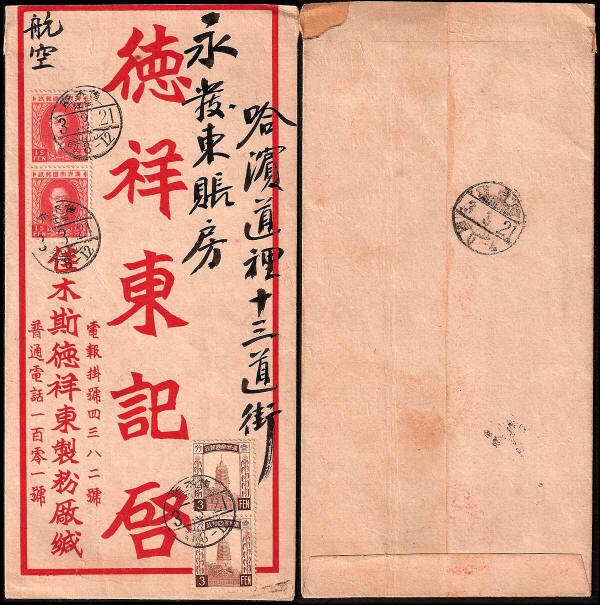 航空
哈濱道裡十三道街
永發東賬房
德祥東記啓
電報掛號四三八二號
佳木斯德祥東製粉廠緘
普通電話一百零一號
15
FEN
3
FEN
3
FEN
3 3 21
8-12
3 3 21
8-12
3 3 21